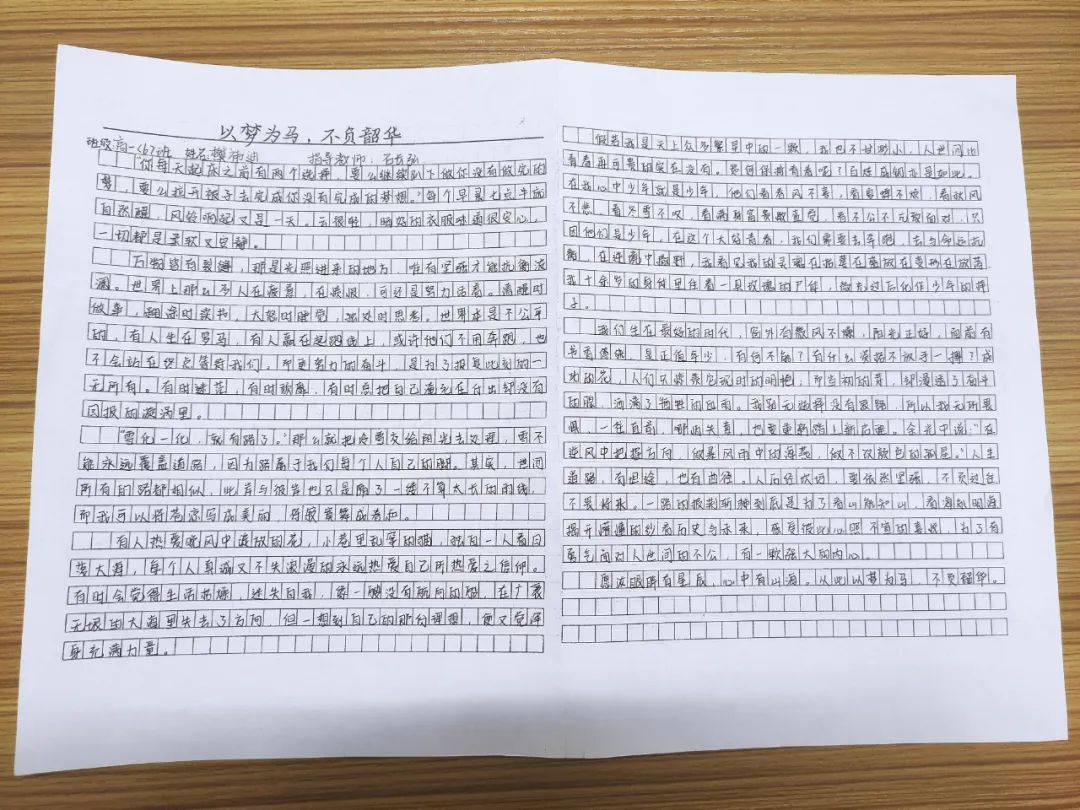 以梦为马，不负韶华
班级高一(6)班 姓名樊沛迪 指导教师：石长弘
“你每天起床之前有两个选择，要么继续趴下做你没有做完的
梦，要么拉开被子去完成你没有完成的梦想。”每个早晨七点半就
自然醒，风铃响起又是一天。云很轻，晒好的衣服味道很安心，
一切都是柔软又安静。
万物皆有裂缝，那是光照进来的地方，唯有坚强才能抗衡浪
潮。世界上那么多人在疲惫，在疲惫，可还是努力活着。清醒时
做事，糊涂时读书，大怒时睡觉，独处时思考。世界本是不公平
的，有人生在罗马，有人赢在起跑线上，或许他们不用奔跑，也
不会站在终点等待我们。而更努力的奋斗，是为了报复此刻的一
无所有。有时迷茫，有时颓靡，有时总把自己淹死在付出却没有
回报的漩涡里。
“雪化一化，就有路了。”那么就把冷雪交给阳光去处理，雪不
能永远覆盖道路，因为路属于我们每个人自己的脚。其实，世间
所有的路都相似，此岸与彼岸也只是隔了一缕不算太长的雨线，
而我可以将苍凉写成美丽，将寂寞舞成春和。
有人热爱晚风中遥放的花，小巷里别笨的猫，独自一人看日
落大海，每个人真诚又不失浪漫的永远热爱自己所热爱之信仰。
有时会觉得生活枯燥，迷失自我，像一艘没有航向的船，在广袤
无垠的大海里失去了方向，但一想到自己的那份理想，便又觉浑
身充满力量。
假若我是天上众多繁星中的一颗，我也不甘渺小，人世间比
青春再可贵的实在没有。
在我心中少年就是少年，他们看春风不喜，看夏蝉不烦，看秋风
不悲，看冬雪不叹，看满身富贵懒察觉，看不公不允敢面对，只
因他们是少年。在这个大好青春，我们需要去奔跑，去与命运抗
衡，在逆潮中撒野，我看见我的灵魂在
子。
我们生在最好的时代，窗外有微风不燥，阳光正好，面前有
书香傍依，是正值年少，有何不能？有什么资格不放手一搏？成
功的花，人们只惊羡它现时的明艳，而当初的芽，却浸透了奋斗
的泪，洒满了牺牲的血雨。我别无选择没有退路，所以我无所畏
惧，一往直前，哪怕失意，也要重新踏上新启程。余光中说：“在
逆风中把握方向，做暴风雨中的海燕，做不改颜色的孤星。”人生
道路，有坦途，也有曲径。
不畏将来。一路的披荆斩棘到底是为了看山能知山，看海能明海，
揭开朦胧的纱看历史与未来，感受彼此心照不宣的喜悦，为了有
勇气面对人世间的不公，有一颗强大的内心。
愿浓眼眸有星辰，心中有山海。从此以梦为马，不负韶华。